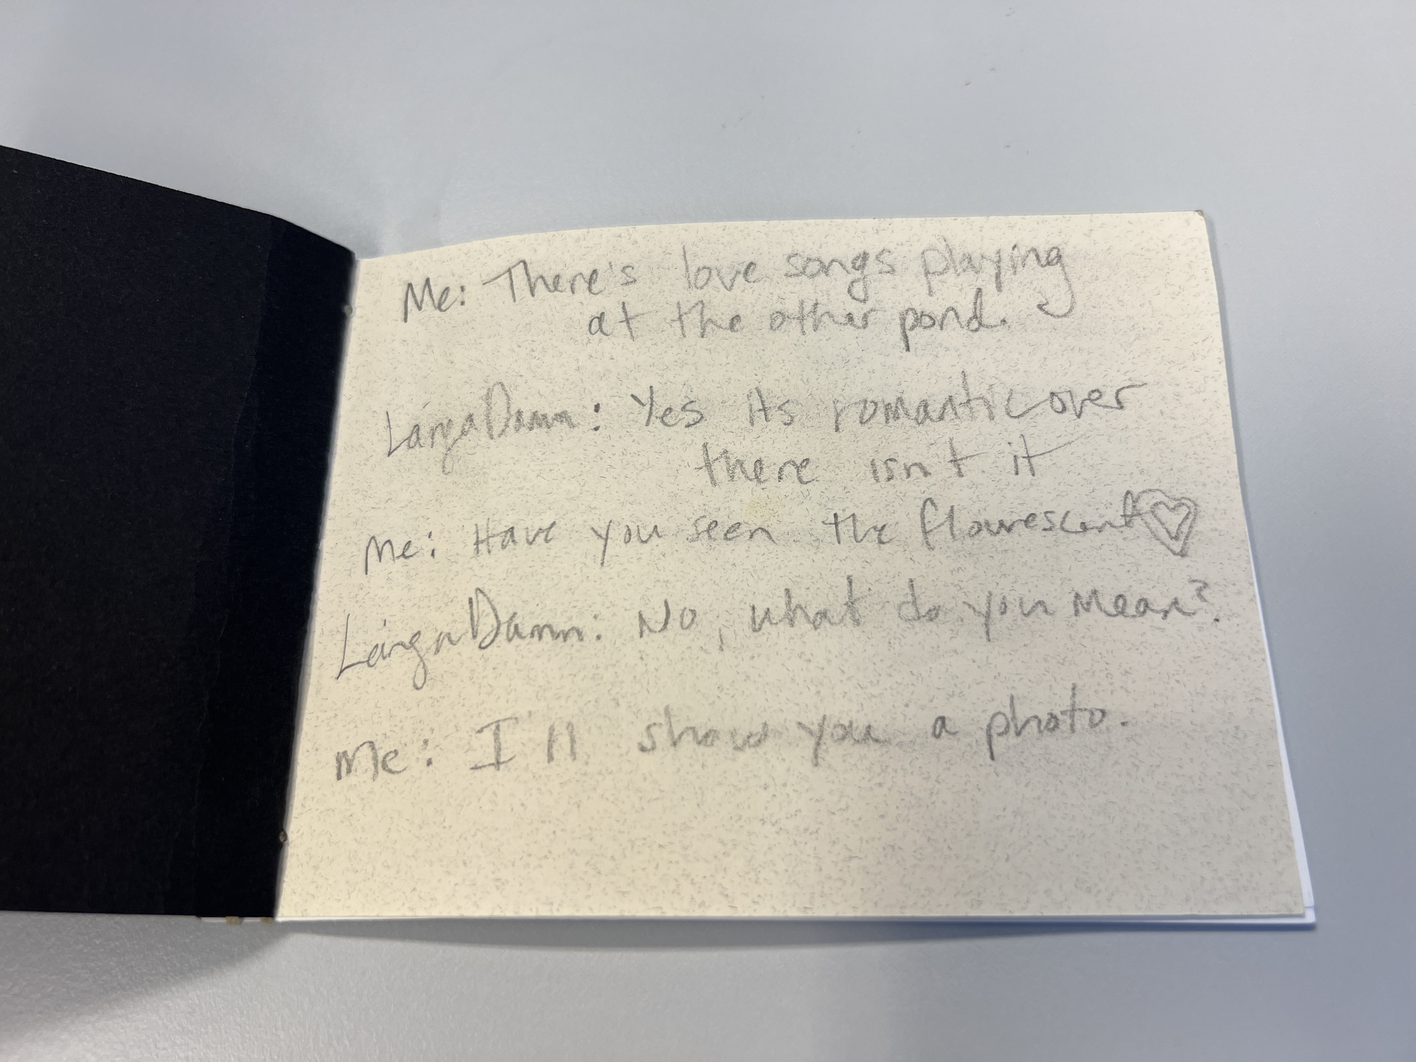 Me: There's love songs playing
at the other pond.
LaingaDamn: Yes its romantic over
there isn't it
Me: Have you seen the flourescent
LaingaDamn: No, what do you mean?
Me: I'll show you a photo.